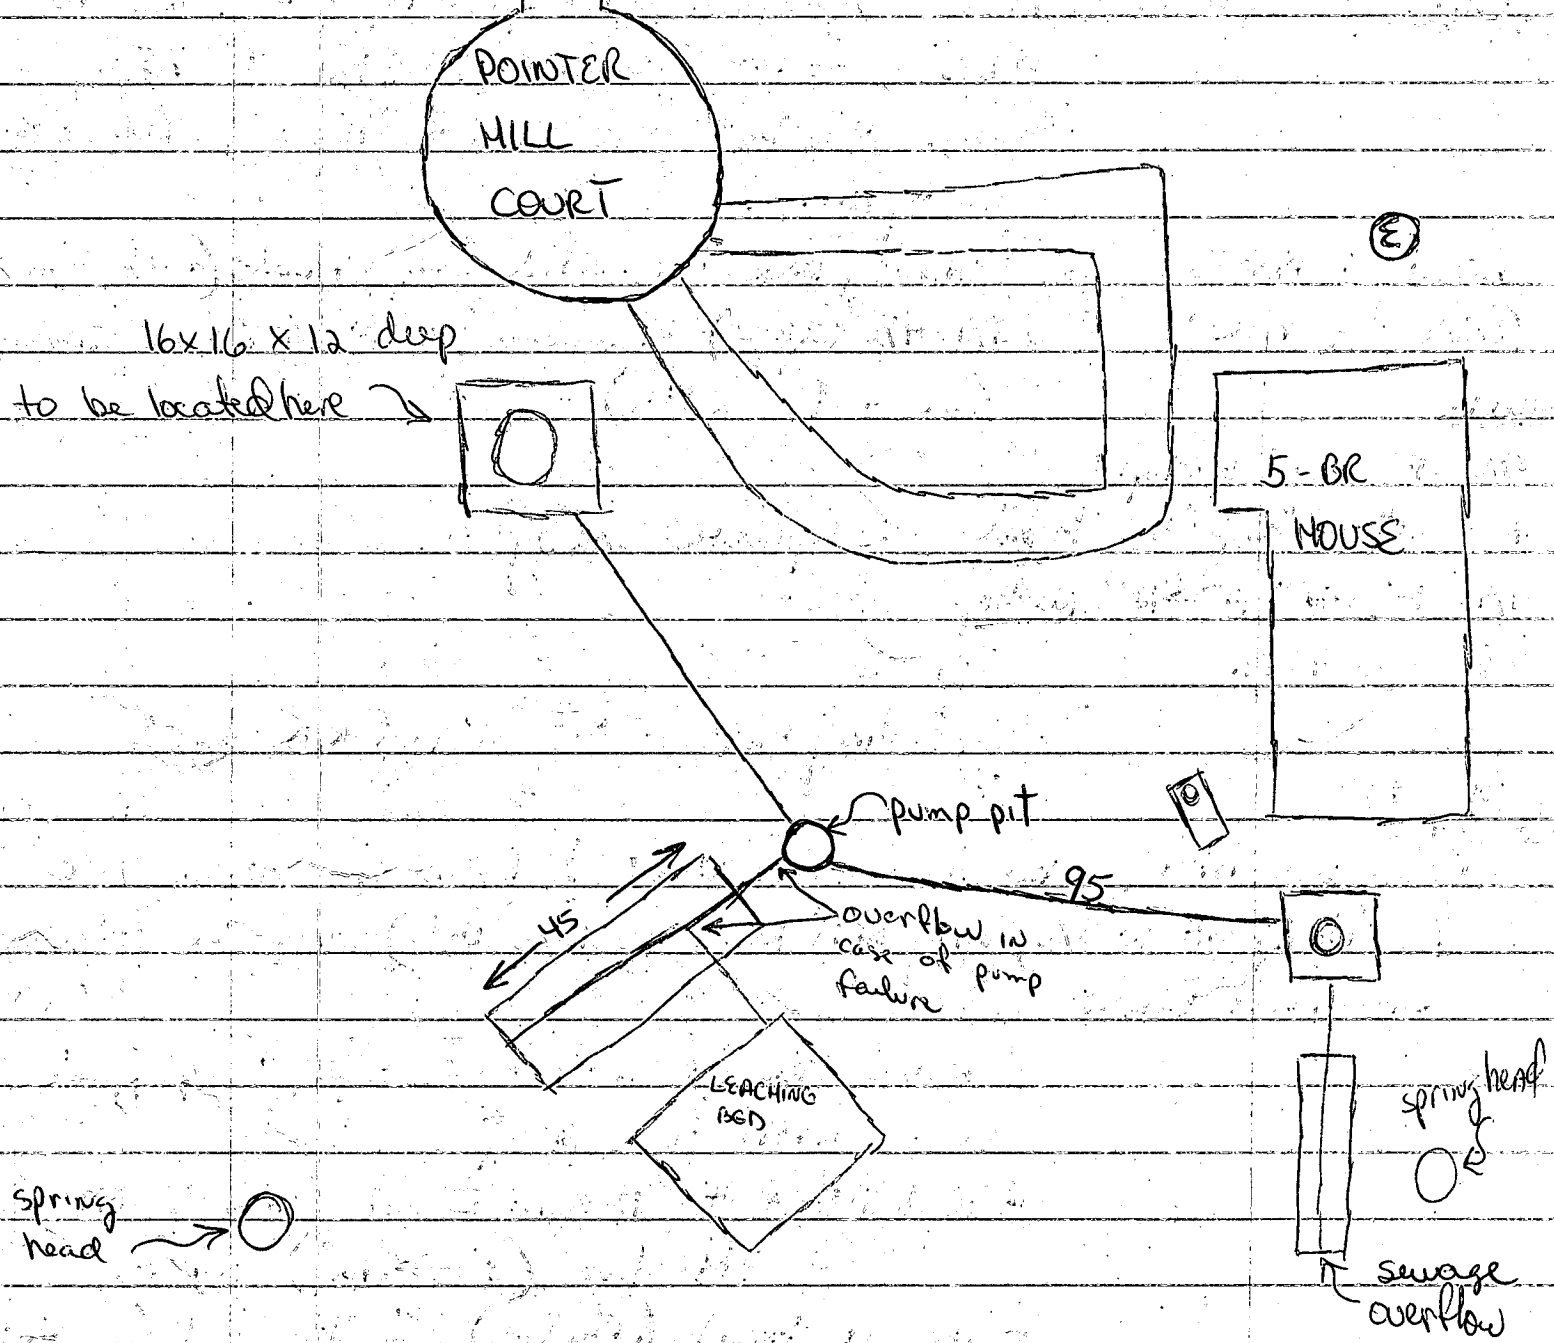 POINTER
MILL
COURT
E
16x16 x 12 deep
to be located here
5-BR
HOUSE
pump pit
95
45
overflow in
case of pump
failure
LEACHING
BED
spring head
spring
head
sewage
overflow